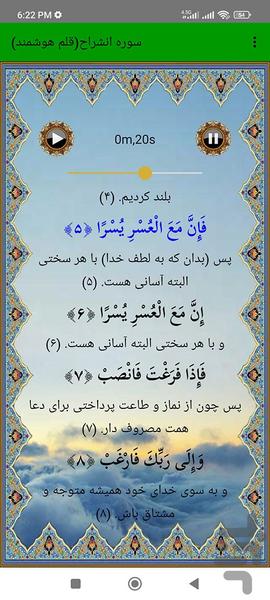 6:22 PM
سوره انشراح(قلم هوشمند)
0m,20s
بلند کردیم. (۴)
فَإِنَّ مَعَ الْعُسْرِ يُسْرًا ﴿۵﴾
پس (بدان که به لطف خدا) با هر سختی
البته آسانی هست. (۵)
إِنَّ مَعَ الْعُسْرِ يُسْرًا ﴿۶﴾
و با هر سختی البته آسانی هست. (۶)
فَإِذَا فَرَغْتَ فَانْصَبْ ﴿۷﴾
پس چون از نماز و طاعت پرداختی برای دعا
همت مصروف دار. (۷)
وَإِلَى رَبِّكَ فَارْغَبْ ﴿۸﴾
و به سوی خدای خود همیشه متوجه و
مشتاق باش. (۸)